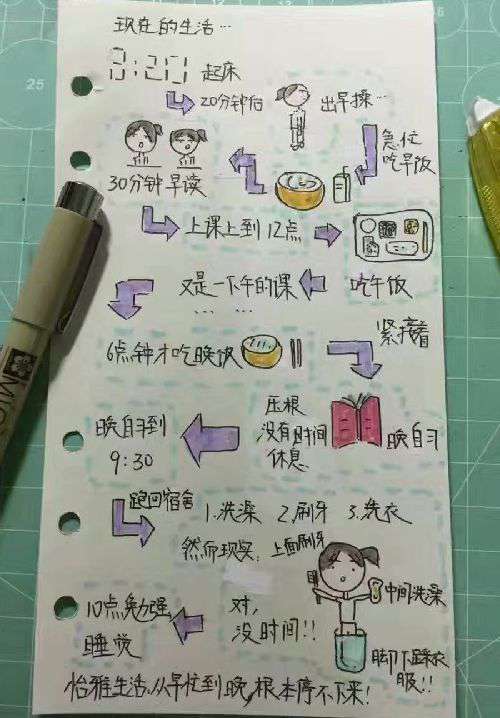 现在的生活…
3:20 起床
20分钟后
出早操…
急忙
吃早饭
30分钟早读
上课上到12点
吃午饭
又是一下午的课
… …
6点钟才吃晚饭
紧接着
晚自习
压根
没有时间
休息
晚自习到
9:30
跑回宿舍
1.洗澡 2.刷牙 3.洗衣
然而现实,上面刷牙
中间洗澡
脚下踩衣
服!!
对,
没时间!!
10点勉强
睡觉
怡雅生活,从早忙到晚,根本停不下来!
25